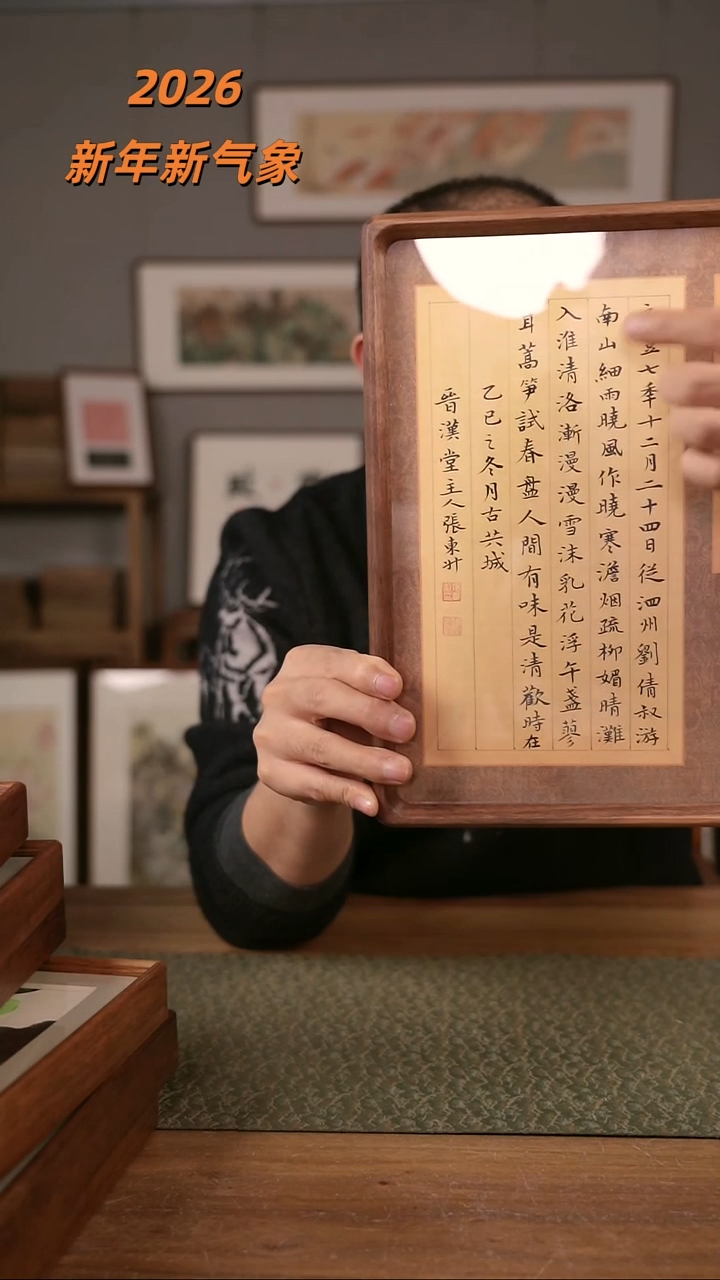 2026
新年新气象
七秊十二月二十四日從泗州劉倩叔游
南山細雨曉風作曉寒澹烟疏柳媚晴灘
入淮清洛漸漫漫雪沫乳花浮午盞蓼
蒿笋試春盘人間有味是清歡時在
乙巳之冬月古共城
晉漢堂主人張東升